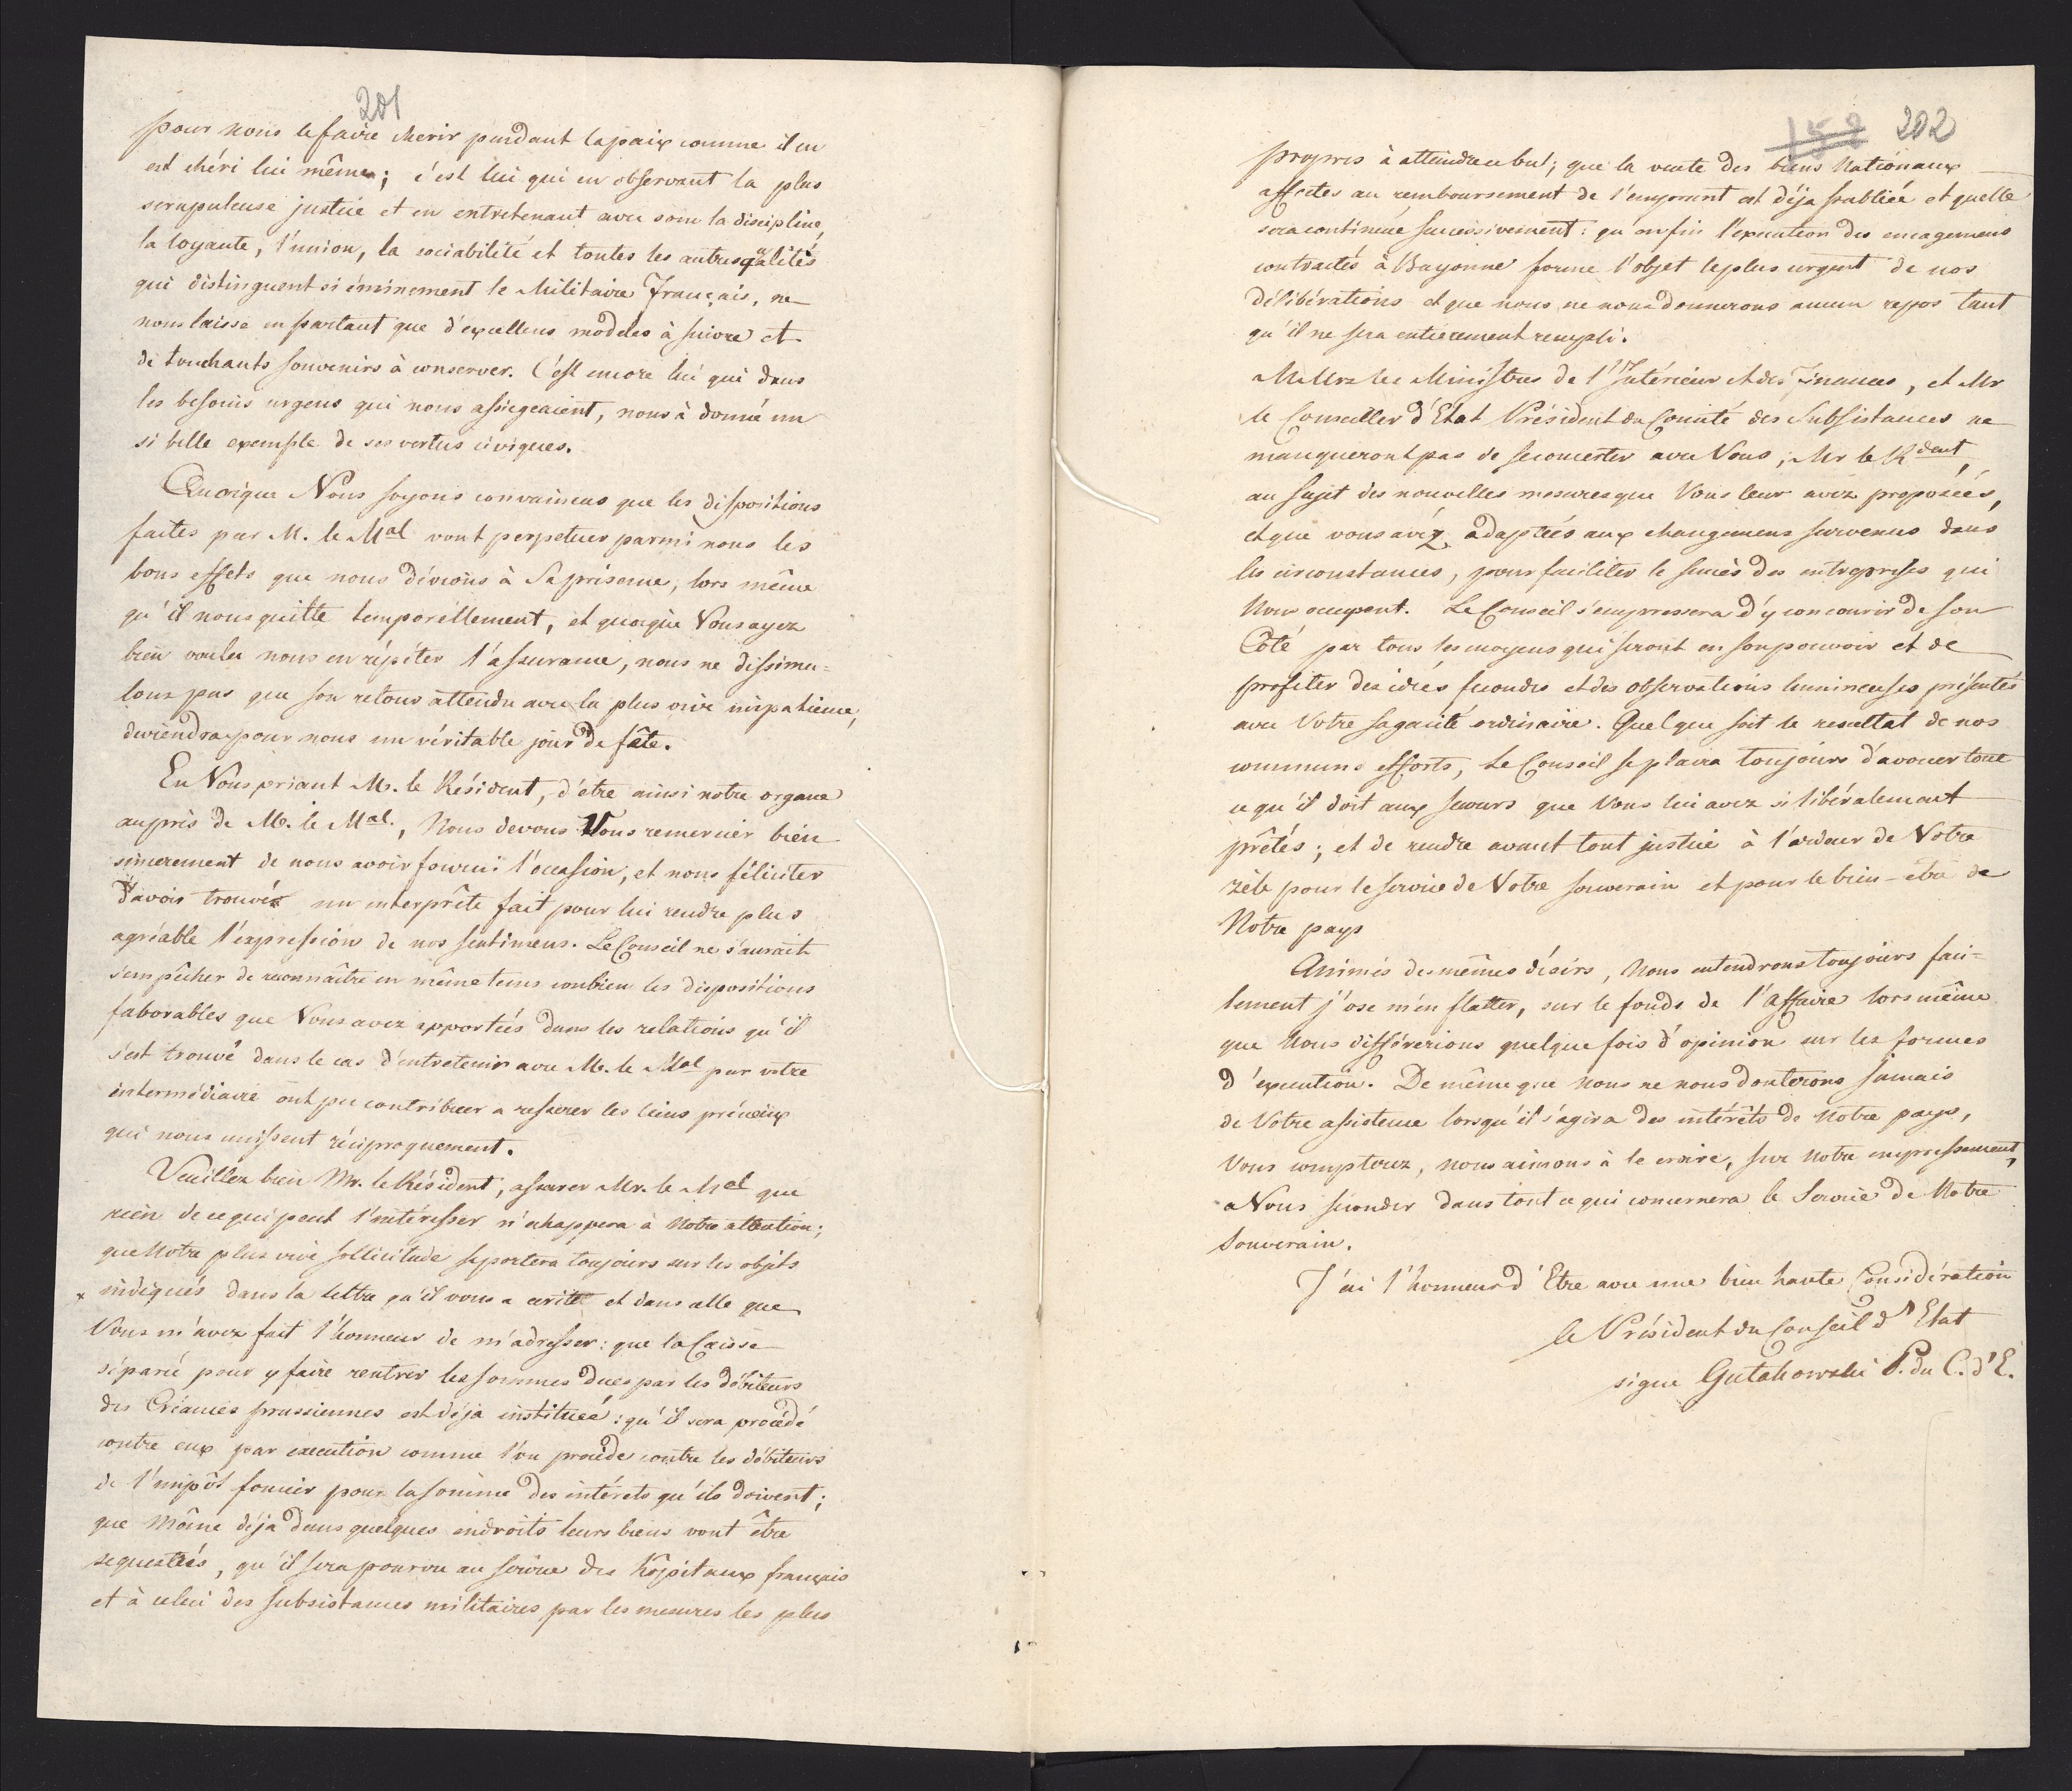 201
pour nous le faire chérir pendant la paix comme il en
est chéri lui même; c'est lui qui en observant la plus
scrupuleuse justice et en entretenant avec soin la discipline,
la loyauté, l'union, la sociabilité et toutes les autres qualités
qui distinguent si éminement le Militaire Français, ne
nous laisse en partant que d'excellens modeles à suivre et
de touchants souvenirs à conserver. C'est encore lui qui dans
les besoins urgens qui nous assiegeaient, nous à donné un
si belle exemple de ses vertus civiques.
Quoique Nous soyons convaincus que les dispositions
faites par M. le Mal vont perpetuer parmi nous les
bons effets que nous dévions à Sa présence, lors même
qu'il nous quitte temporellement, et quoique Vous ayez
bien voulu nous en répéter l'assurance, nous ne dissimu=
lons pas que son retour attendu avec la plus vive impatience,
deviendra pour nous un véritable jour de fâte.
En Vous priant M. le Résident, d'être ainsi notre organe
auprès de M. le Mal., Nous devons Vous remercier bien
sincerement de nous avoir fourni l'occasion, et nous féliciter
d'avoir trouvés un interprête fait pour lui rendre plus
agréable l'expression de nos sentimens. Le Conseil ne s'aurait
s'empêcher de reconnaître en même tems combien les dispositions
faborables que Vous avez apportées dans les relations qu'il
s'est trouvé dans le cas d'entretenir avec M. le Mal par votre
intermédiaire ont pu contribuer a resserer les liens précieux
qui nous unissent réciproquement.
Veuillez bien Mr. le Résident, assurer Mr. le Mal que
rien de ce qui peut l'intéresser n'echappera à Notre attention;
que Notre plus vive sollicitude se portera toujours sur les objets
x indiqués dans la lettre qu'il vous a ecrite et dans alle que
Vous m'avez fait l'honneur de m'adresser: que la Caisse
séparée pour y faire rentrer les sommes dues par les débiteurs
des Créances prussiennes est déja instituée: qu'il sera procédé
contre eux par execution comme l'on procède contre les débiteurs
de l'impôt foncier pour la somme des intérets qu'ils doivent;
que Même déja dans quelques endroits leurs biens vont être
sequestrés, qu'il sera pourvu au service des Hôpitaux français
et à celui des subsistances militaires par les mesures les plus
202
propres à atteindre ce but; que la vente des biens Nationaux
affectes au remboursement de l'emprunt est déja publiée et quelle
sera continuée successivement: qu'enfin l'execution des engagemens
contractés à Bayonne forme l'objet le plus urgent de nos
délibérations et que nous ne nous donnerons aucun repos tant
qu'il ne sera entierement rempli.
M Mrs les Ministres de l'Intérieur et des Finances, et Mr
le Conseiller d'Etat Président du Comité des Subsistances ne
manqueront pas de se concerter avec Vous, Mr le Rdent,
au sujet des nouvelles mesures que Vous leur avez proposées,
et que vous avéz adaptées aux changemens survenus dans
les circonstances, pour faciliter le succès des entreprises qui
Nous occupent. Le Conseil s'empressera d'y concourir de son
Côté par tous les moyens qui seront en son pouvoir et de
profiter des idées fecondes et des observations lumineuses présentés
avec Votre sagacité ordinaire. Quelque soit le resultat de nos
communs efforts, Le Conseil se plaira toujours d'avouer tout
ce qu'il doit aux secours que Vous lui avez si libéralement
prêtés; et de rendre avant tout justice à l'ardeur de Votre
zèle pour le service de Votre souverain et pour le bien-être de
Notre pays
Animés des mêmes désirs, Nous entendrons toujours faci=
lement j'ose m'en flatter, sur le fonds de l'affaire lors même
que Nous différerions quelque fois d'opinion sur les formes
d'execution. De même que Nous ne nous douterons jamais
de Votre assistence lorsqu'il s'agira des intérêts de Notre pays,
Vous compterez, nous aimons à le croire, sur Notre empressement,
a Vous seconder dans tout ce qui concernera le Service de Notre
Souverain.
J'ai l'honneur d'Etre avec une bien haute Considération
le Président du Conseil d'Etat
signe Gutakowski P. du C. d'E.